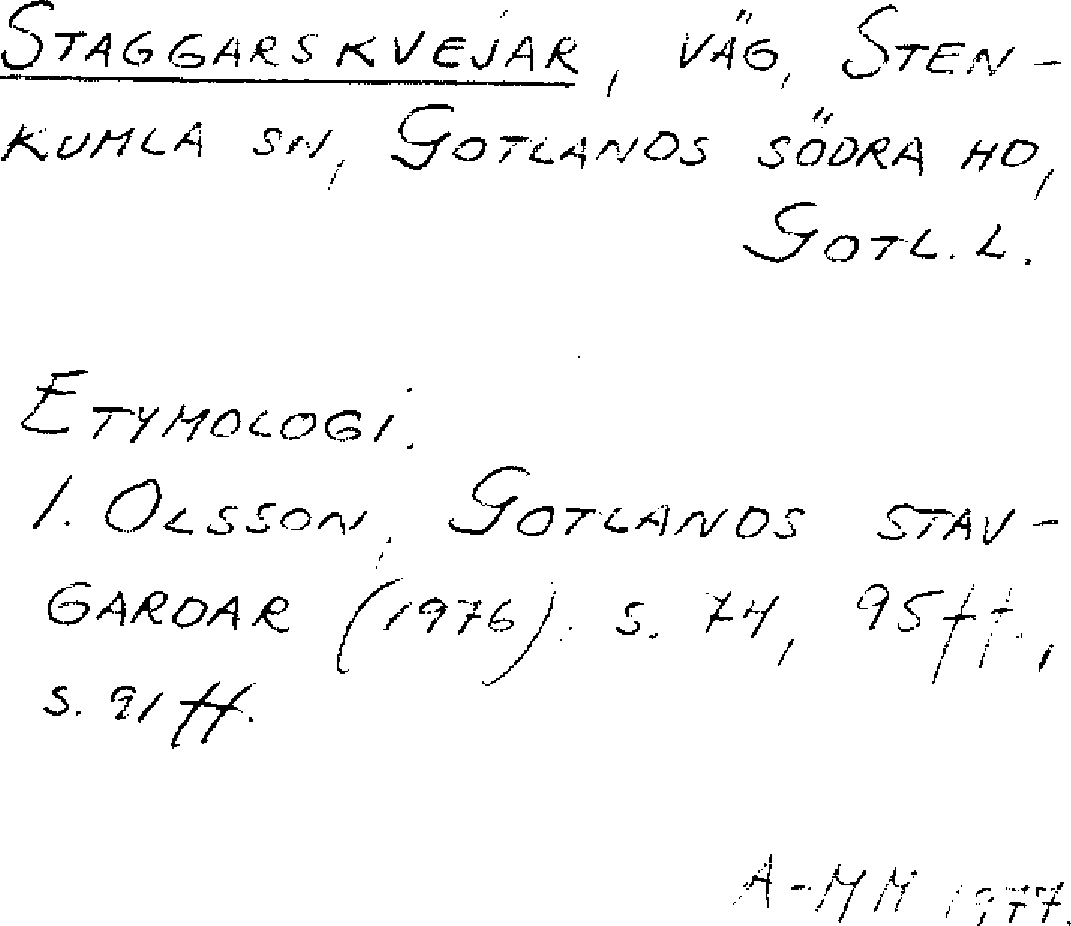 STAGGARSKVEJAR, VÄG, STEN-
KUMLA SN, GOTLANDS SÖDRA HD,
GOTL. L.
ETYMOLOGI.
I. OLSSON, GOTLANDS STAV-
GARDAR (1976). S. 74, 95ff.,
S. 91ff.
A-MM 1977.